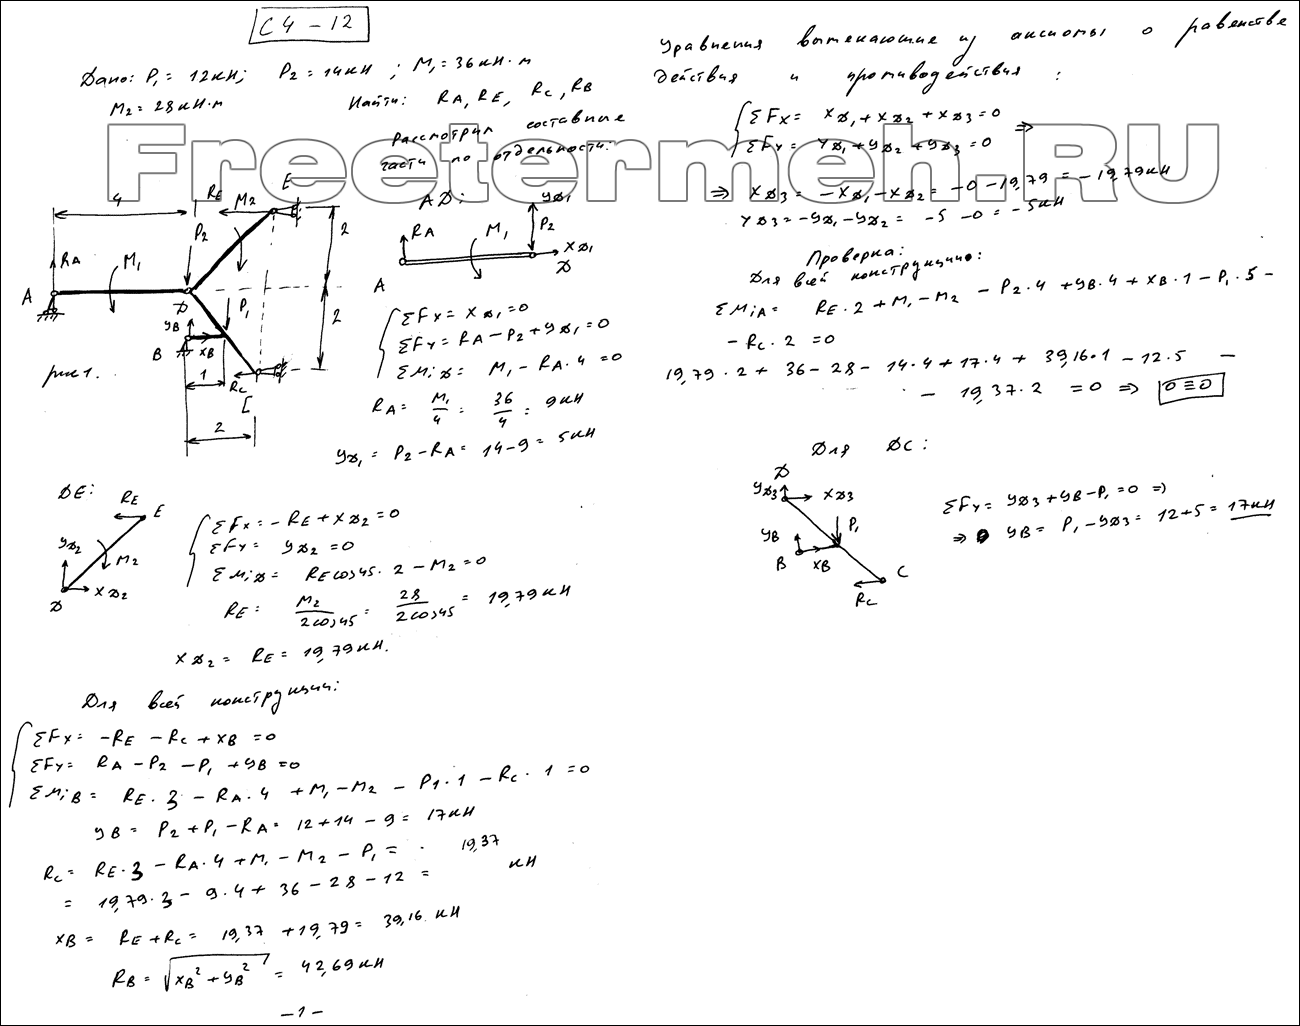 С4 – 12
Дано: P₁ = 12кН; P₂ = 14кН; M₁ = 36кН·м
M₂ = 28кН·м Найти: RA, RE, RC, RB
Рассмотрим составные
части по отдельности:
Freetermeh.RU
4
RE
M₂
E
P₂
2
RA
M₁
A
D
P₁
2
YB
B
XB
1
RC
C
2
рис1.
AD:
YD₁
RA
M₁
P₂
XD₁
A
D
ΣFx = XD₁ = 0
ΣFy = RA – P₂ + YD₁ = 0
ΣMiD = M₁ – RA·4 = 0
RA = M₁/4 = 36/4 = 9кН
YD₁ = P₂ – RA = 14 – 9 = 5кН
DE:
RE
E
YD₂
M₂
D
XD₂
ΣFx = –RE + XD₂ = 0
ΣFy = YD₂ = 0
ΣMiD = REcos45·2 – M₂ = 0
RE = M₂/2cos45 = 28/2cos45 = 19,79кН
XD₂ = RE = 19,79кН.
Для всей конструкции:
ΣFx = –RE – RC + XB = 0
ΣFy = RA – P₂ – P₁ + YB = 0
ΣMiB = RE·3 – RA·4 + M₁ – M₂ – P1·1 – RC·1 = 0
YB = P₂ + P₁ – RA = 12 + 14 – 9 = 17кН
RC = RE·3 – RA·4 + M₁ – M₂ – P₁ =
= 19,79·3 – 9·4 + 36 – 28 – 12 = 19,37 кН
XB = RE + RC = 19,37 + 19,79 = 39,16 кН
RB = √XB² + YB² = 42,69кН
–1–
Уравнения вытекающие из аксиомы о равенстве
действия и противодействия:
ΣFx = XD₁ + XD₂ + XD₃ = 0
ΣFy = YD₁ + YD₂ + YD₃ = 0 ⇒
⇒ XD₃ = –XD₁ – XD₂ = –0 – 19,79 = –19,79кН
YD₃ = –YD₁ – YD₂ = –5 – 0 = –5кН
Проверка:
Для всей конструкции:
ΣMiA = RE·2 + M₁ – M₂ – P₂·4 + YB·4 + XB·1 – P₁·5 –
– RC·2 = 0
19,79·2 + 36 – 28 – 14·4 + 17·4 + 39,16·1 – 12·5 –
– 19,37·2 = 0 ⇒ 0 ≡ 0
Для DC:
D
YD₃
XD₃
P₁
YB
B
XB
C
RC
ΣFy = YD₃ + YB – P₁ = 0 ⇒
⇒ YB = P₁ – YD₃ = 12 + 5 = 17кН